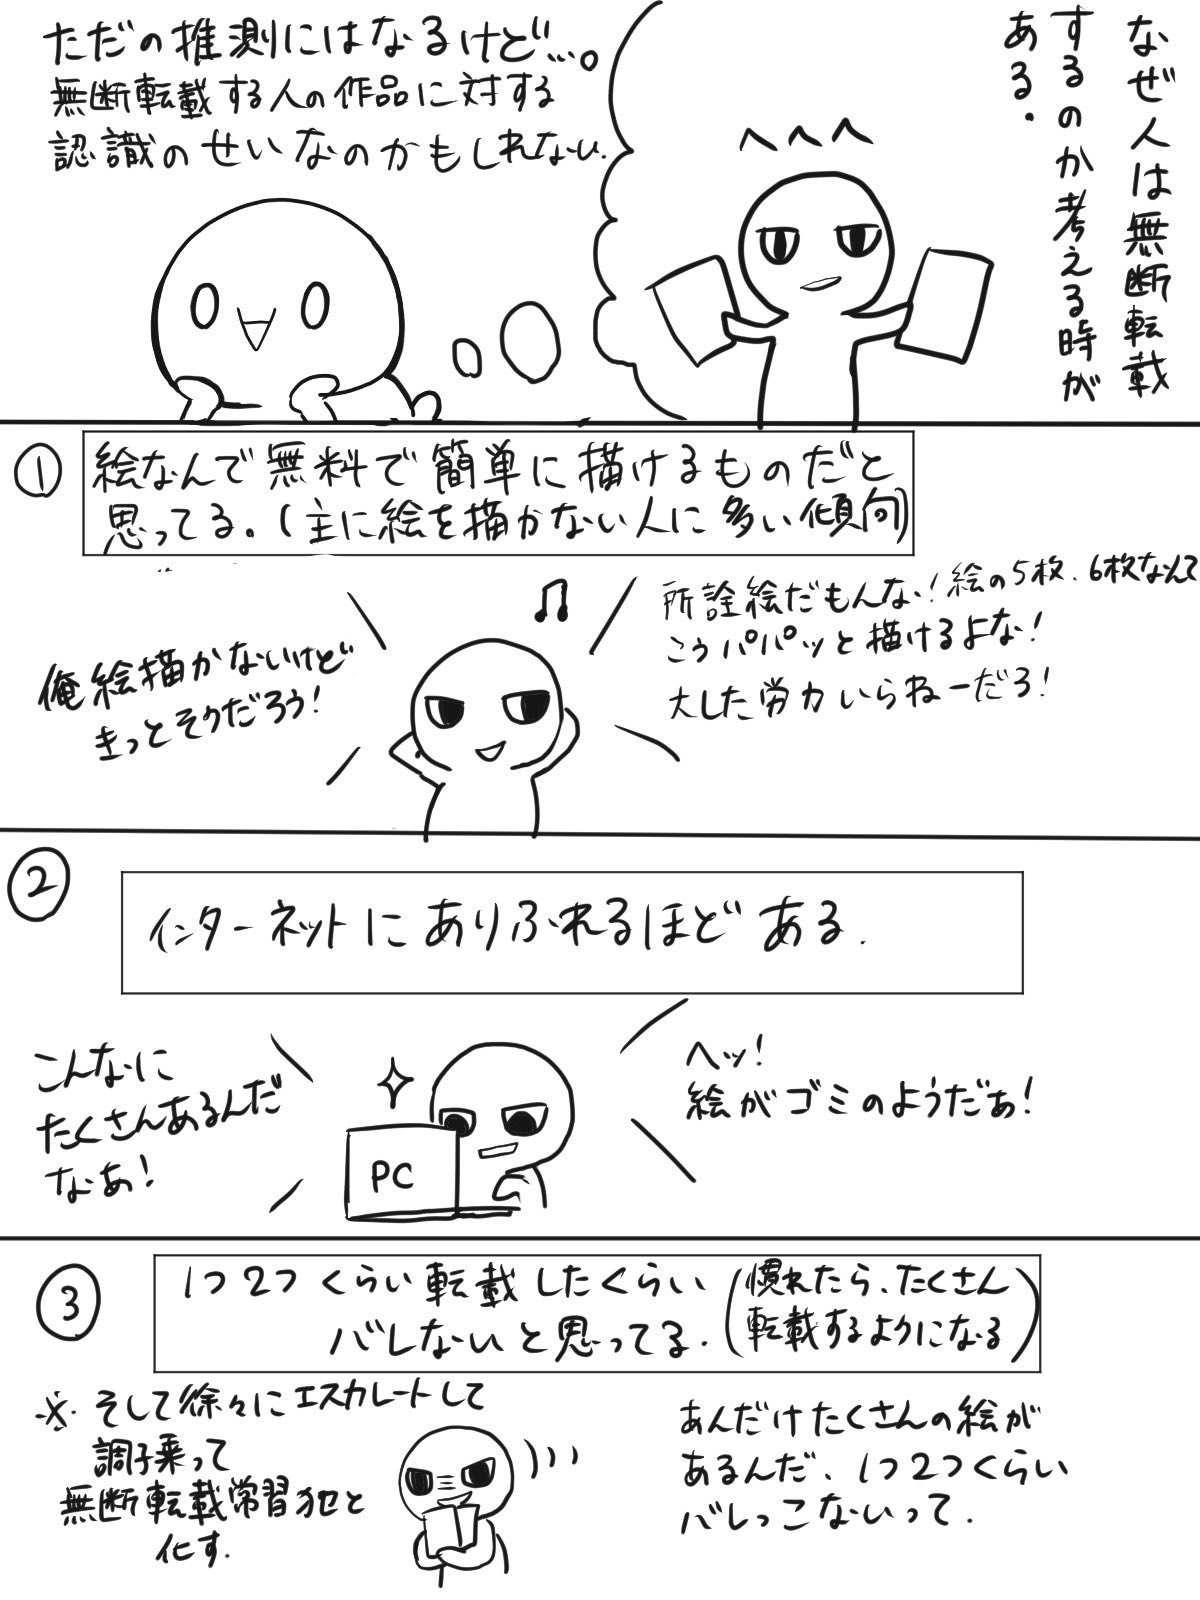 なぜ人は無断転載
するのか考える時が
ある.
ただの推測にはなるけど…。
無断転載する人の作品に対する
認識のせいなのかもしれない.
へへへ
①
絵なんて無料で簡単に描けるものだと
思ってる.(主に絵を描かない人に多い傾向)
俺絵描かないけど
きっとそうだろう!
所詮絵だもんな!絵の5枚、6枚なんて
こうパパッと描けるよな!
大した労力いらねーだろ!
②
インターネットにありふれるほどある.
こんなに
たくさんあるんだ
なぁ!
PC
へッ!
絵がゴミのようだぁ!
③
1つ2つくらい転載したくらい
バレないと思ってる.
(慣れたら、たくさん
転載するようになる)
※.そして徐々にエスカレートして
調子乗って
無断転載常習犯と
化す.
あんだけたくさんの絵が
あるんだ、1つ2つくらい
バレっこないって.